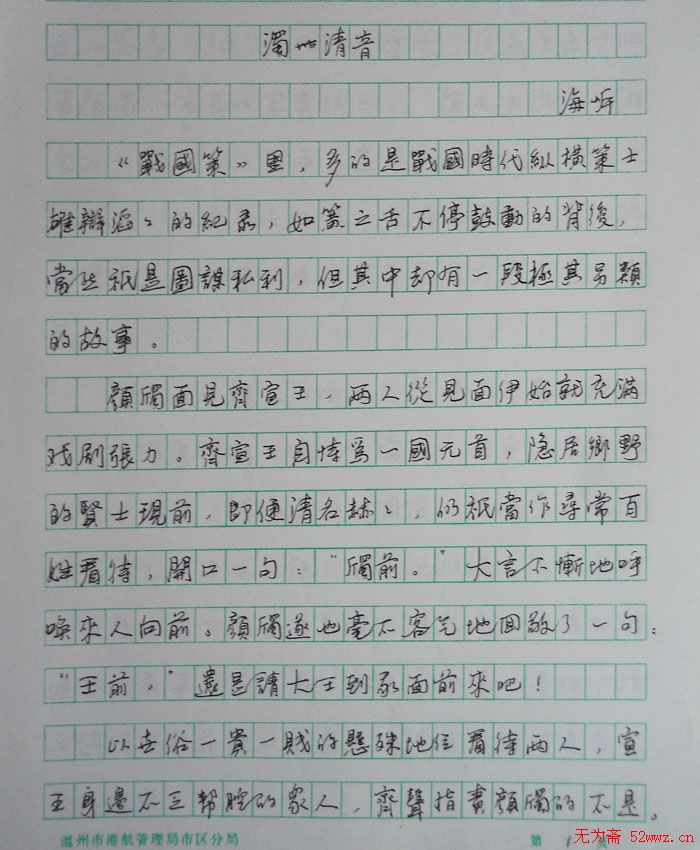 濁世清音
海昕
《戰國策》里，多的是戰國時代縱橫策士
雄辯滔々的紀录，如簧之舌不停鼓動的背後，
當然祇是圖謀私利，但其中却有一段極其另類
的故事。
顏斶面見齊宣王，两人從見面伊始就充滿
戏剧張力。齊宣王自恃爲一國元首，隐居鄉野
的賢士現前，即便清名赫々，仍祇當作尋常百
姓看待，開口一句：“斶前。”大言不慚地呼
喚來人向前。顏斶遂也毫不客气地回敬了一句：
“王前。”還是請大王到我面前來吧！
以世俗一貴一賤的懸殊地位看待两人，宣
王身邊不乏幫腔的衆人，齊聲指責顏斶的不是。
温州市港航管理局市区分局
第 1 页
无为斋 52wwz.cn